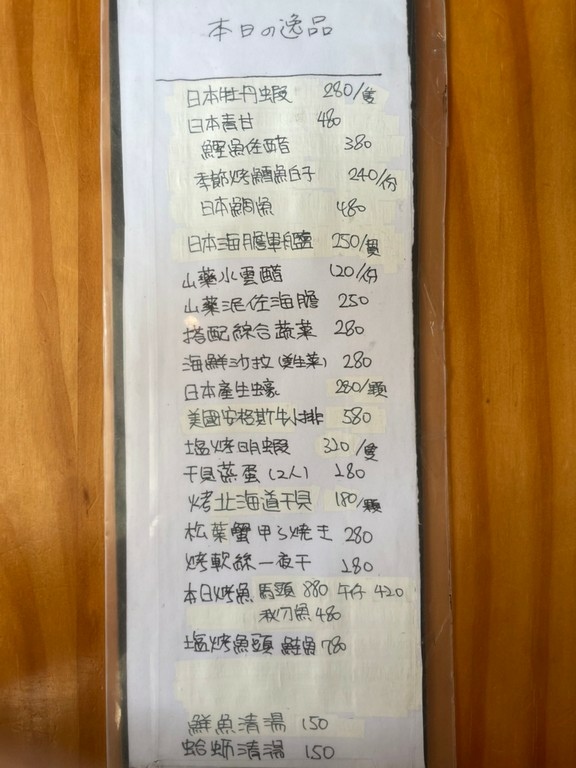 本日の逸品
日本牡丹蝦 280/隻
日本青甘 480
鰹魚佐醋 380
季節烤鱈魚白子 240/份
日本鯛魚 480
日本海膽軍艦 250/貫
山藥水雲醋 120/份
山藥泥佐海膽 250
搭配綜合蔬菜 280
海鮮沙拉(生菜) 280
日本產生蠔 280/顆
美國安格斯牛小排 580
塩烤明蝦 320/隻
干貝蒸蛋(2人) 180
烤北海道干貝 180/顆
松葉蟹甲ら焼き 280
烤軟絲一夜干 180
本日烤魚 馬頭 880 午仔 420
秋刀魚 480
塩烤魚頭 鮭魚 780
鮮魚清湯 150
蛤蛎清湯 150